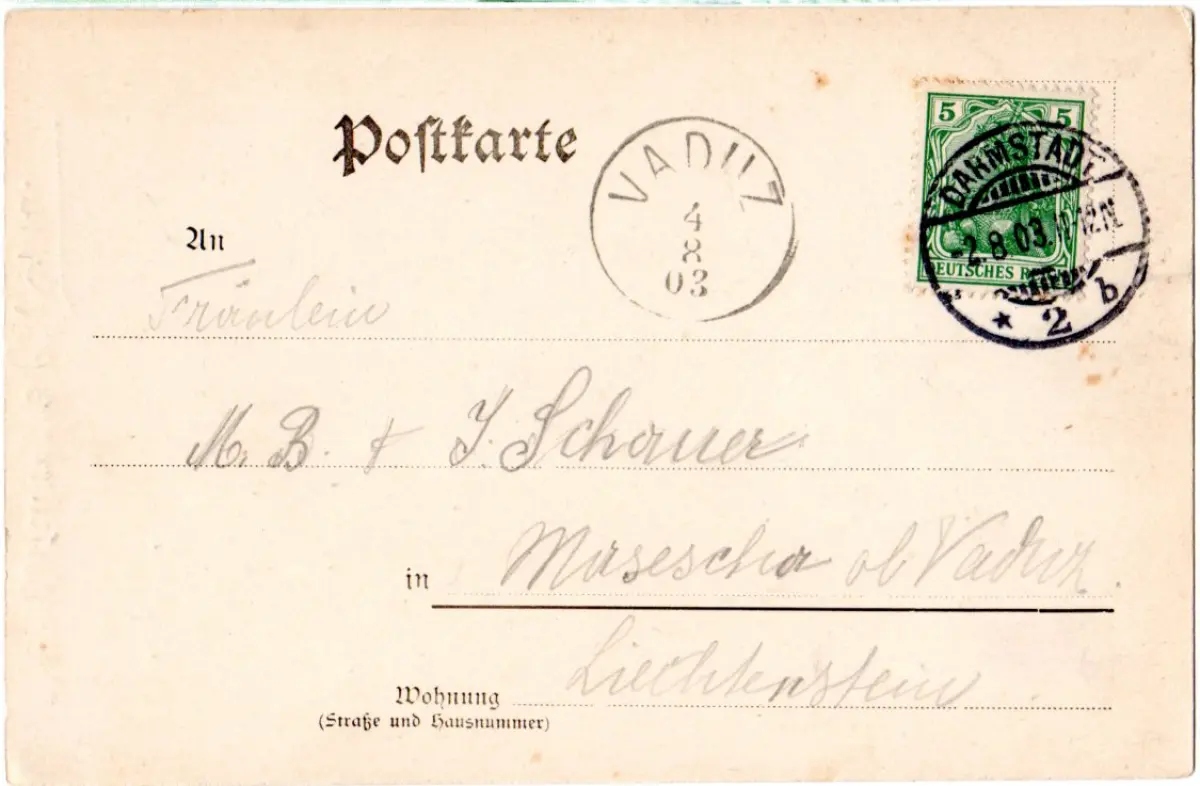 Postkarte
VADUZ
4
8
03
5 5
DEUTSCHES REICH
DARMSTADT
-2.8.03. 11-12.N.
* 2 b
An
Fräulein
M. B. & J. Schauer
in Masescha ob Vaduz.
Liechtenstein.
Wohnung
(Straße und Hausnummer)